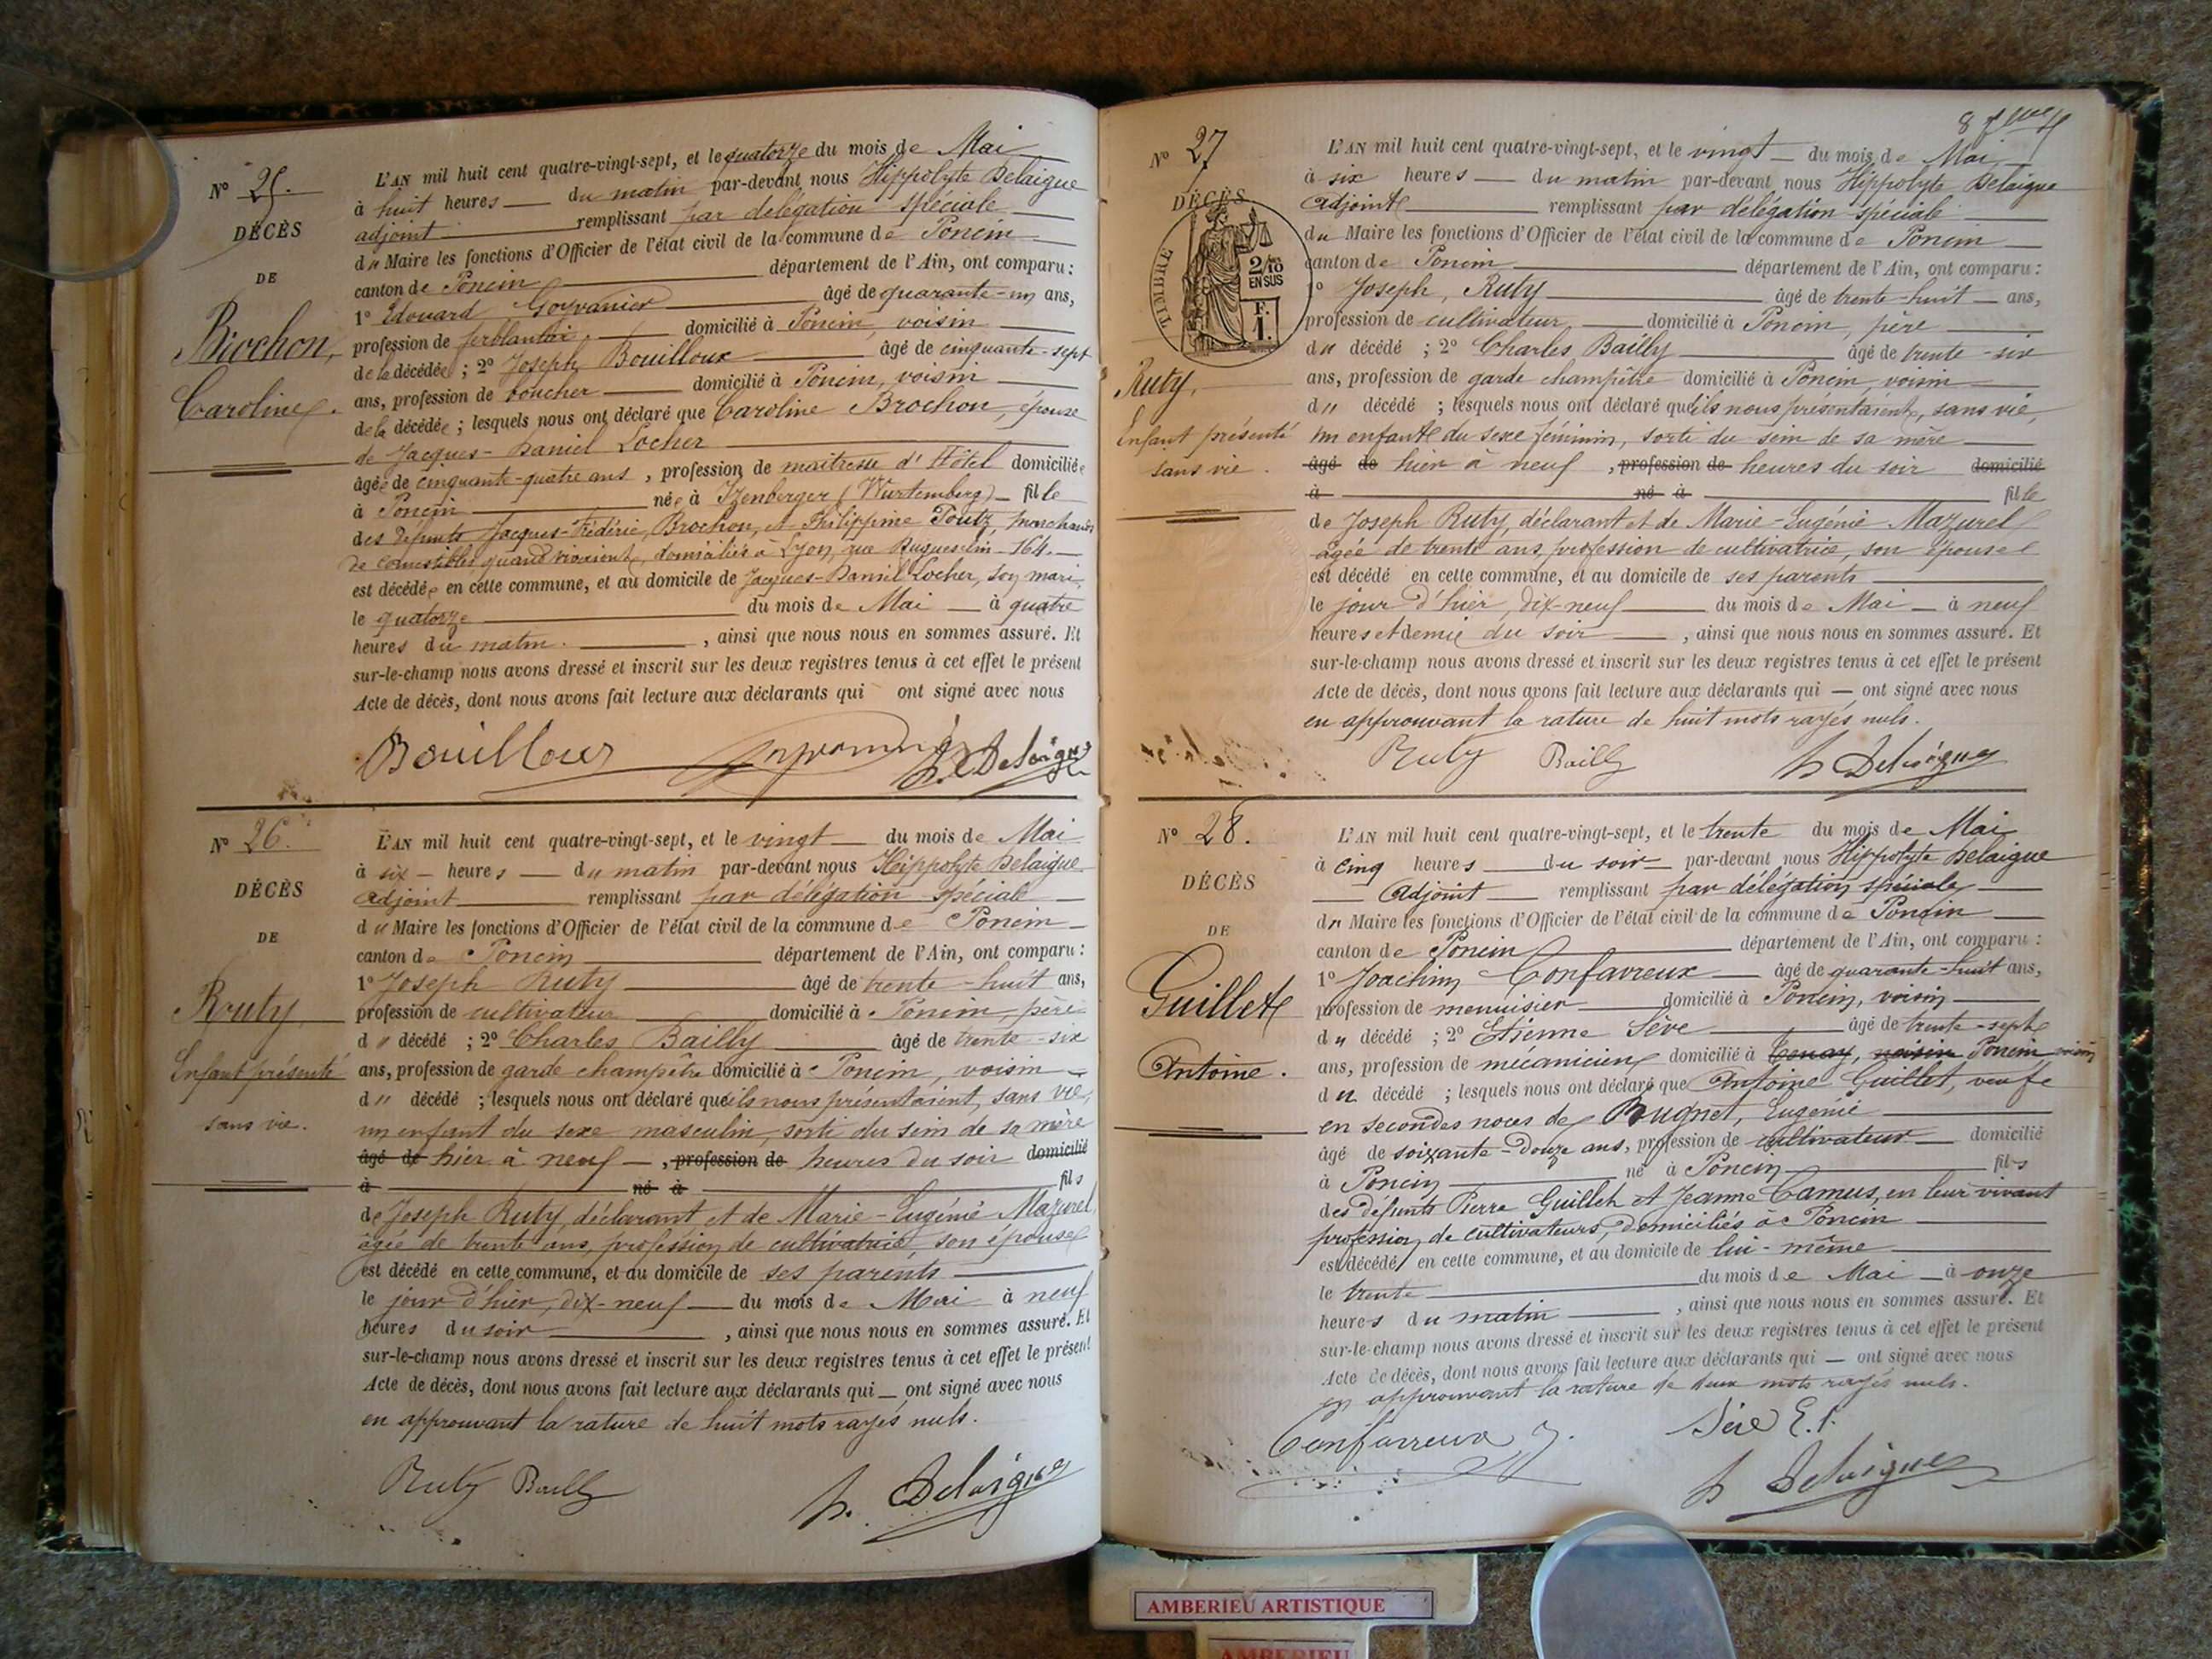 N° 25.
DÉCÈS
DE
Brochon,
Caroline.
L'AN mil huit cent quatre-vingt-sept, et le quatorze du mois de Mai
à huit heures du matin par-devant nous Hippolyte Delaigue
adjoint remplissant par délégation spéciale
du Maire les fonctions d'Officier de l'état civil de la commune de Poncin
canton de Poncin département de l'Ain, ont comparu :
1° Edouard âgé de quarante-un ans,
profession de ferblantier domicilié à Poncin, voisin
de la décédée ; 2° Joseph Bouilloux âgé de cinquante-sept
ans, profession de boucher domicilié à Poncin, voisin
de la décédée ; lesquels nous ont déclaré que Caroline Brochon, épouse
de Jacques-Daniel Locher
âgée de cinquante-quatre ans, profession de maîtresse d'Hôtel domiciliée
à Poncin née à (Wurtemberg) fille
des défunts Jacques-Frédéric, Brochon, et Philippine marchands
de comestibles, quand vivaient, domiciliés à Lyon, rue 164.
est décédée en cette commune, et au domicile de Jacques-Daniel Locher, son mari,
le quatorze du mois de Mai à quatre
heures du matin, ainsi que nous nous en sommes assuré. Et
sur-le-champ nous avons dressé et inscrit sur les deux registres tenus à cet effet le présent
Acte de décès, dont nous avons fait lecture aux déclarants qui ont signé avec nous
Bouilloux H. Delaigue
N° 26.
DÉCÈS
DE
Ruty
Enfant présenté
sans vie.
L'AN mil huit cent quatre-vingt-sept, et le vingt du mois de Mai
à six heures du matin par-devant nous Hippolyte Delaigue
adjoint remplissant par délégation spéciale
du Maire les fonctions d'Officier de l'état civil de la commune de Poncin
canton de Poncin département de l'Ain, ont comparu :
1° Joseph Ruty âgé de trente-huit ans,
profession de cultivateur domicilié à Poncin, père
d" décédé ; 2° Charles Bailly âgé de trente-six
ans, profession de garde champêtre domicilié à Poncin, voisin
d" décédé ; lesquels nous ont déclaré qu'ils nous présentaient, sans vie,
un enfant du sexe masculin, sorti du sein de sa mère
âgé de hier à neuf, profession de heures du soir domicilié
à né à fils
de Joseph Ruty, déclarant et de Marie-Eugénie Mazurel
âgée de trente ans, profession de cultivatrice, son épouse
est décédé en cette commune, et au domicile de ses parents
le jour d'hier, dix-neuf du mois de Mai à neuf
heures du soir, ainsi que nous nous en sommes assuré. Et
sur-le-champ nous avons dressé et inscrit sur les deux registres tenus à cet effet le présent
Acte de décès, dont nous avons fait lecture aux déclarants qui ont signé avec nous
en approuvant la rature de huit mots rayés nuls.
Ruty Bailly h. Delaigue
8
N° 27
DÉCÈS
TIMBRE
2/10
EN SUS
F.
1.
Ruty,
Enfant présenté
sans vie.
L'AN mil huit cent quatre-vingt-sept, et le vingt du mois de Mai
à six heures du matin par-devant nous Hippolyte Delaigue
Adjoint remplissant par délégation spéciale
du Maire les fonctions d'Officier de l'état civil de la commune de Poncin
canton de Poncin département de l'Ain, ont comparu :
1° Joseph, Ruty âgé de trente-huit ans,
profession de cultivateur domicilié à Poncin, père
du décédé ; 2° Charles Bailly âgé de trente-six
ans, profession de garde champêtre domicilié à Poncin, voisin
d" décédé ; lesquels nous ont déclaré qu'ils nous présentaient, sans vie,
un enfant du sexe féminin, sorti du sein de sa mère
âgé de hier à neuf, profession de heures du soir domicilié
à né à fille
de Joseph Ruty, déclarant et de Marie-Eugénie Mazurel
âgée de trente ans, profession de cultivatrice, son épouse
est décédé en cette commune, et au domicile de ses parents
le jour d'hier, dix-neuf du mois de Mai à neuf
heures et demie du soir, ainsi que nous nous en sommes assuré. Et
sur-le-champ nous avons dressé et inscrit sur les deux registres tenus à cet effet le présent
Acte de décès, dont nous avons fait lecture aux déclarants qui ont signé avec nous
en approuvant la rature de huit mots rayés nuls.
Ruty Bailly h Delaigue
N° 28.
DÉCÈS
DE
Guillet
Antoine.
L'AN mil huit cent quatre-vingt-sept, et le trente du mois de Mai
à cinq heures du soir par-devant nous Hippolyte Delaigue
Adjoint remplissant par délégation spéciale
du Maire les fonctions d'Officier de l'état civil de la commune de Poncin
canton de Poncin département de l'Ain, ont comparu :
1° Joachim Confavreux âgé de quarante-huit ans,
profession de menuisier domicilié à Poncin, voisin
du décédé ; 2° Etienne Sève âgé de trente-sept
ans, profession de mécanicien domicilié à Tenay, voisin Poncin voisin
du décédé ; lesquels nous ont déclaré que Antoine Guillet, veuf
en secondes noces de Bugnet, Eugénie
âgé de soixante-douze ans, profession de cultivateur domicilié
à Poncin né à Poncin fils
des défunts Pierre Guillet et Jeanne Camus, en leur vivant
profession de cultivateurs, domiciliés à Poncin
est décédé en cette commune, et au domicile de lui-même
le trente du mois de Mai à onze
heures du matin, ainsi que nous nous en sommes assuré. Et
sur-le-champ nous avons dressé et inscrit sur les deux registres tenus à cet effet le présent
Acte de décès, dont nous avons fait lecture aux déclarants qui ont signé avec nous
en approuvant la rature de deux mots rayés nuls.
Confavreux J. Sève E.
h Delaigue
AMBERIEU ARTISTIQUE
AMBERIEU